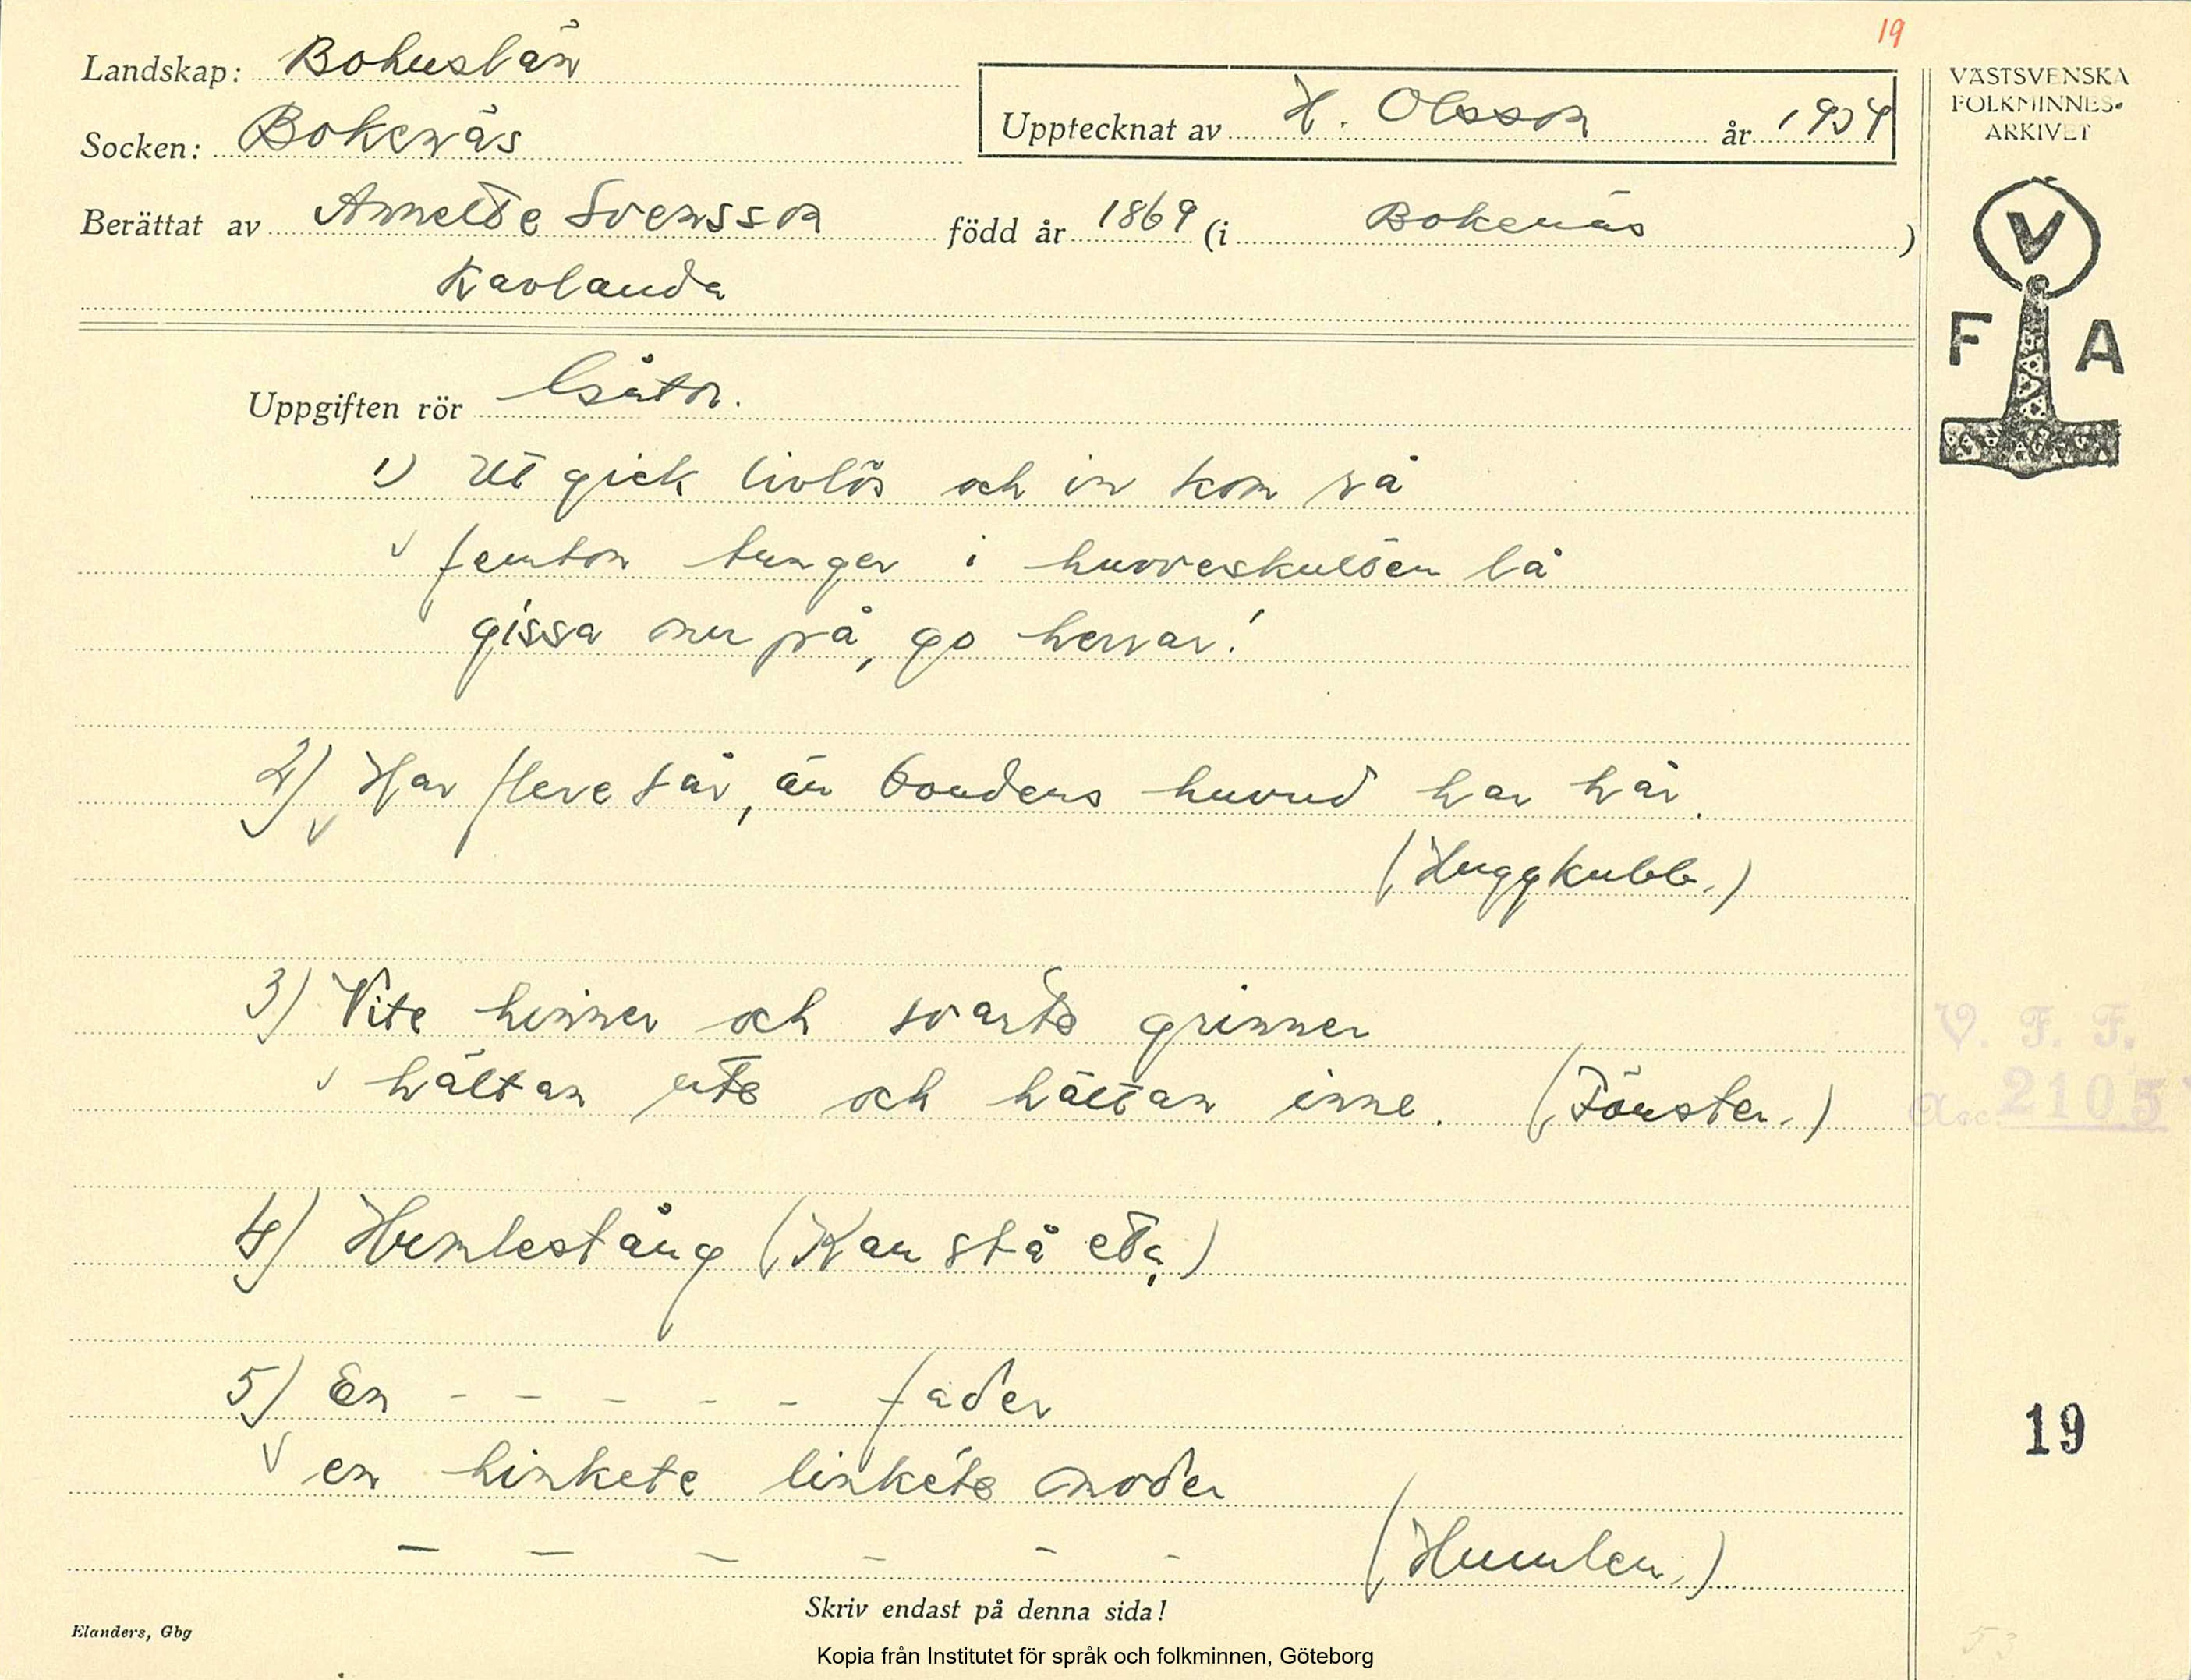 19
Landskap: Bohuslän
Socken: Bokenäs
Upptecknat av H. Olsson år 1929
Berättat av Anette Svensson född år 1869 (i Bokenäs)
Kavlanda
VÄSTSVENSKA
FOLKMINNES-
ARKIVET
V
F A
Uppgiften rör Gåtor.
1) Ut gick livlös och in kom så
femton tunger i huvveskulten lå
gissa nu på, go herrar!
2) Har flere sår, än bondens huvud har hår.
(Huggkubb.)
3) Vite hinner och svarte grinner
hältan ute och hältan inne. (Fönster.)
4) Humlestång (Kan stå ett)
5) En - - - - - fader
en hinkete linkete moder
- - - - - - (Humlen.)
V. F. F.
Acc. 2105
19
Skriv endast på denna sida!
Elanders, Gbg
Kopia från Institutet för språk och folkminnen, Göteborg
53